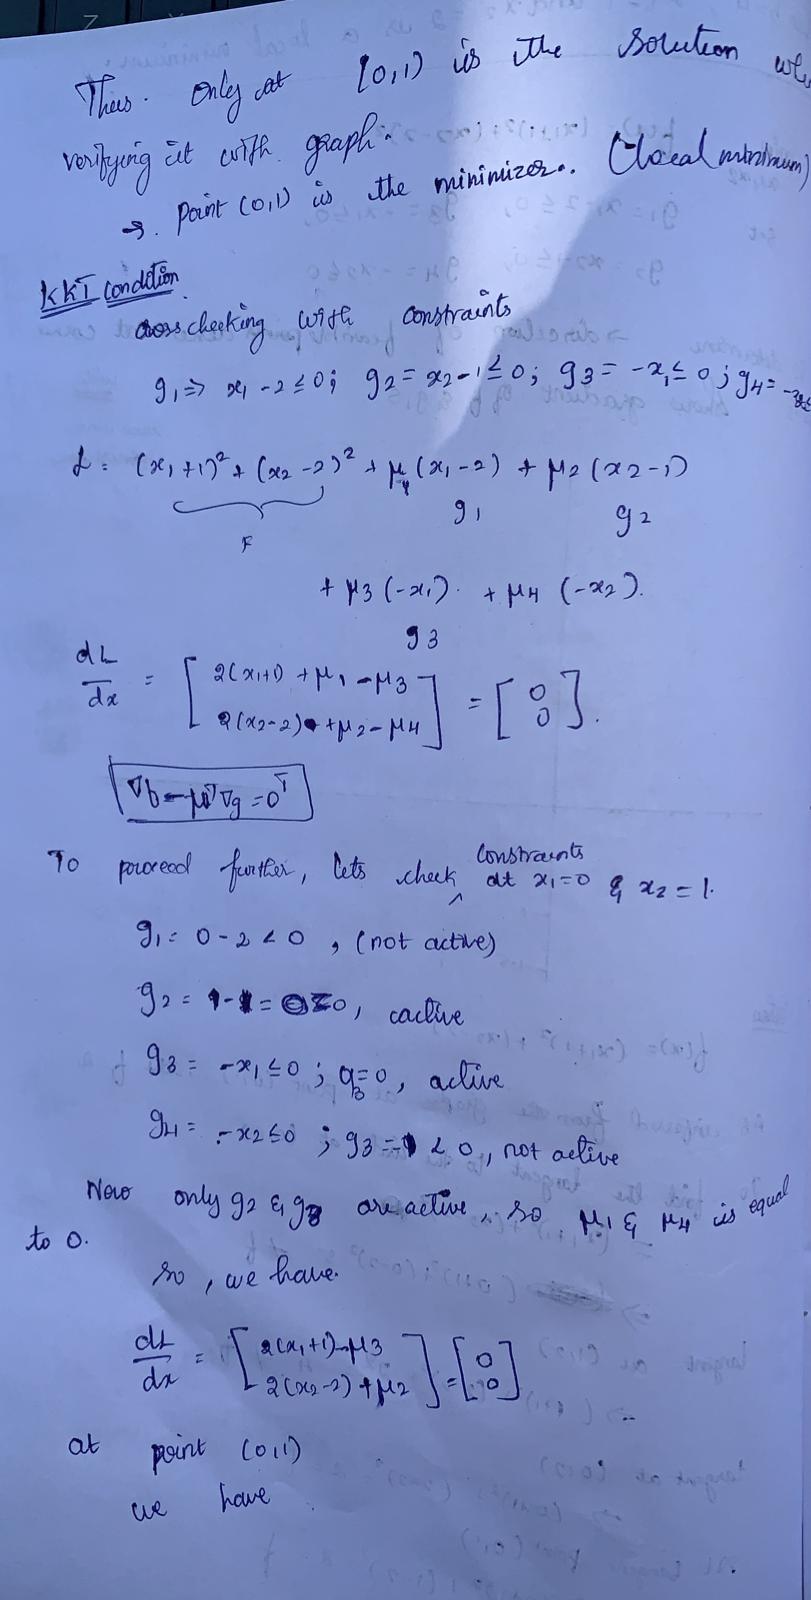 Thus. Only at (0,1) is the solution
verifying it with graph.
→. Point (0,1) is the minimizer. (Local minimum)
KKT Condition.
cross checking with constraints
g₁ ⇒ x₁ - 2 ≤ 0; g₂ = x₂ - 1 ≤ 0; g₃ = -x₁ ≤ 0; g₄ =
L = (x₁ + 1)² + (x₂ - 2)² + μ₁ (x₁ - 2) + μ₂ (x₂ - 1)
F g₁ g₂
+ μ₃ (-x₁) + μ₄ (-x₂).
g₃
dL/dx = [ 2(x₁+1) + μ₁ - μ₃
2(x₂-2) + μ₂ - μ₄ ] = [ 0
0 ].
∇b - μᵀ∇g = 0ᵀ
To proceed further, lets check constraints at x₁=0 & x₂ = 1.
g₁ = 0 - 2 < 0, (not active)
g₂ = 1 - 1 = 0, cactive
g₃ = -x₁ ≤ 0; g₃ = 0, active
g₄ = -x₂ ≤ 0; g₃ = -1 < 0, not active
Now only g₂ & g₃ are active, so μ₁ & μ₄ is equal
to 0.
so, we have.
dL/dx = [ 2(x₁+1) - μ₃
2(x₂-2) + μ₂ ] = [ 0
0 ]
at point (0,1)
we have